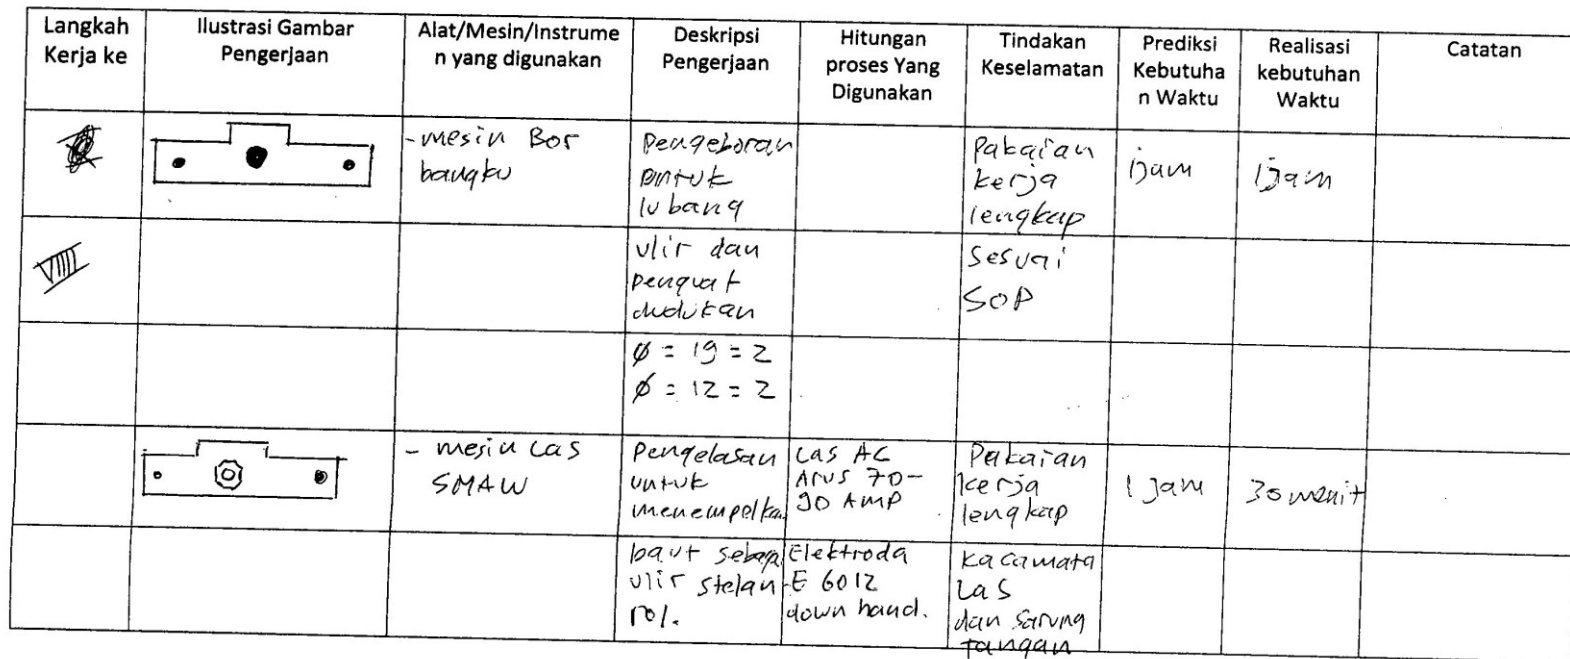 Langkah Kerja ke
Ilustrasi Gambar Pengerjaan
Alat/Mesin/Instrume n yang digunakan
Deskripsi Pengerjaan
Hitungan proses Yang Digunakan
Tindakan Keselamatan
Prediksi Kebutuha n Waktu
Realisasi kebutuhan Waktu
Catatan
- mesin Bor
bangku
Pengeboran
untuk
lubang
Pakaian
kerja
lengkap
1 jam
1 jam
VIIII
ulir dan
penguat
dudukan
Sesuai
SOP
Ø = 19 = 2
Ø = 12 = 2
- mesin Las
SMAW
Pengelasan
untuk
menempelka
Las AC
Arus 70-
90 AMP
Pakaian
kerja
lengkap
1 Jam
30 menit
baut sebag
ulir stelan
rol.
Elektroda
E 6012
down hand.
Kacamata
Las
dan sarung
tangan